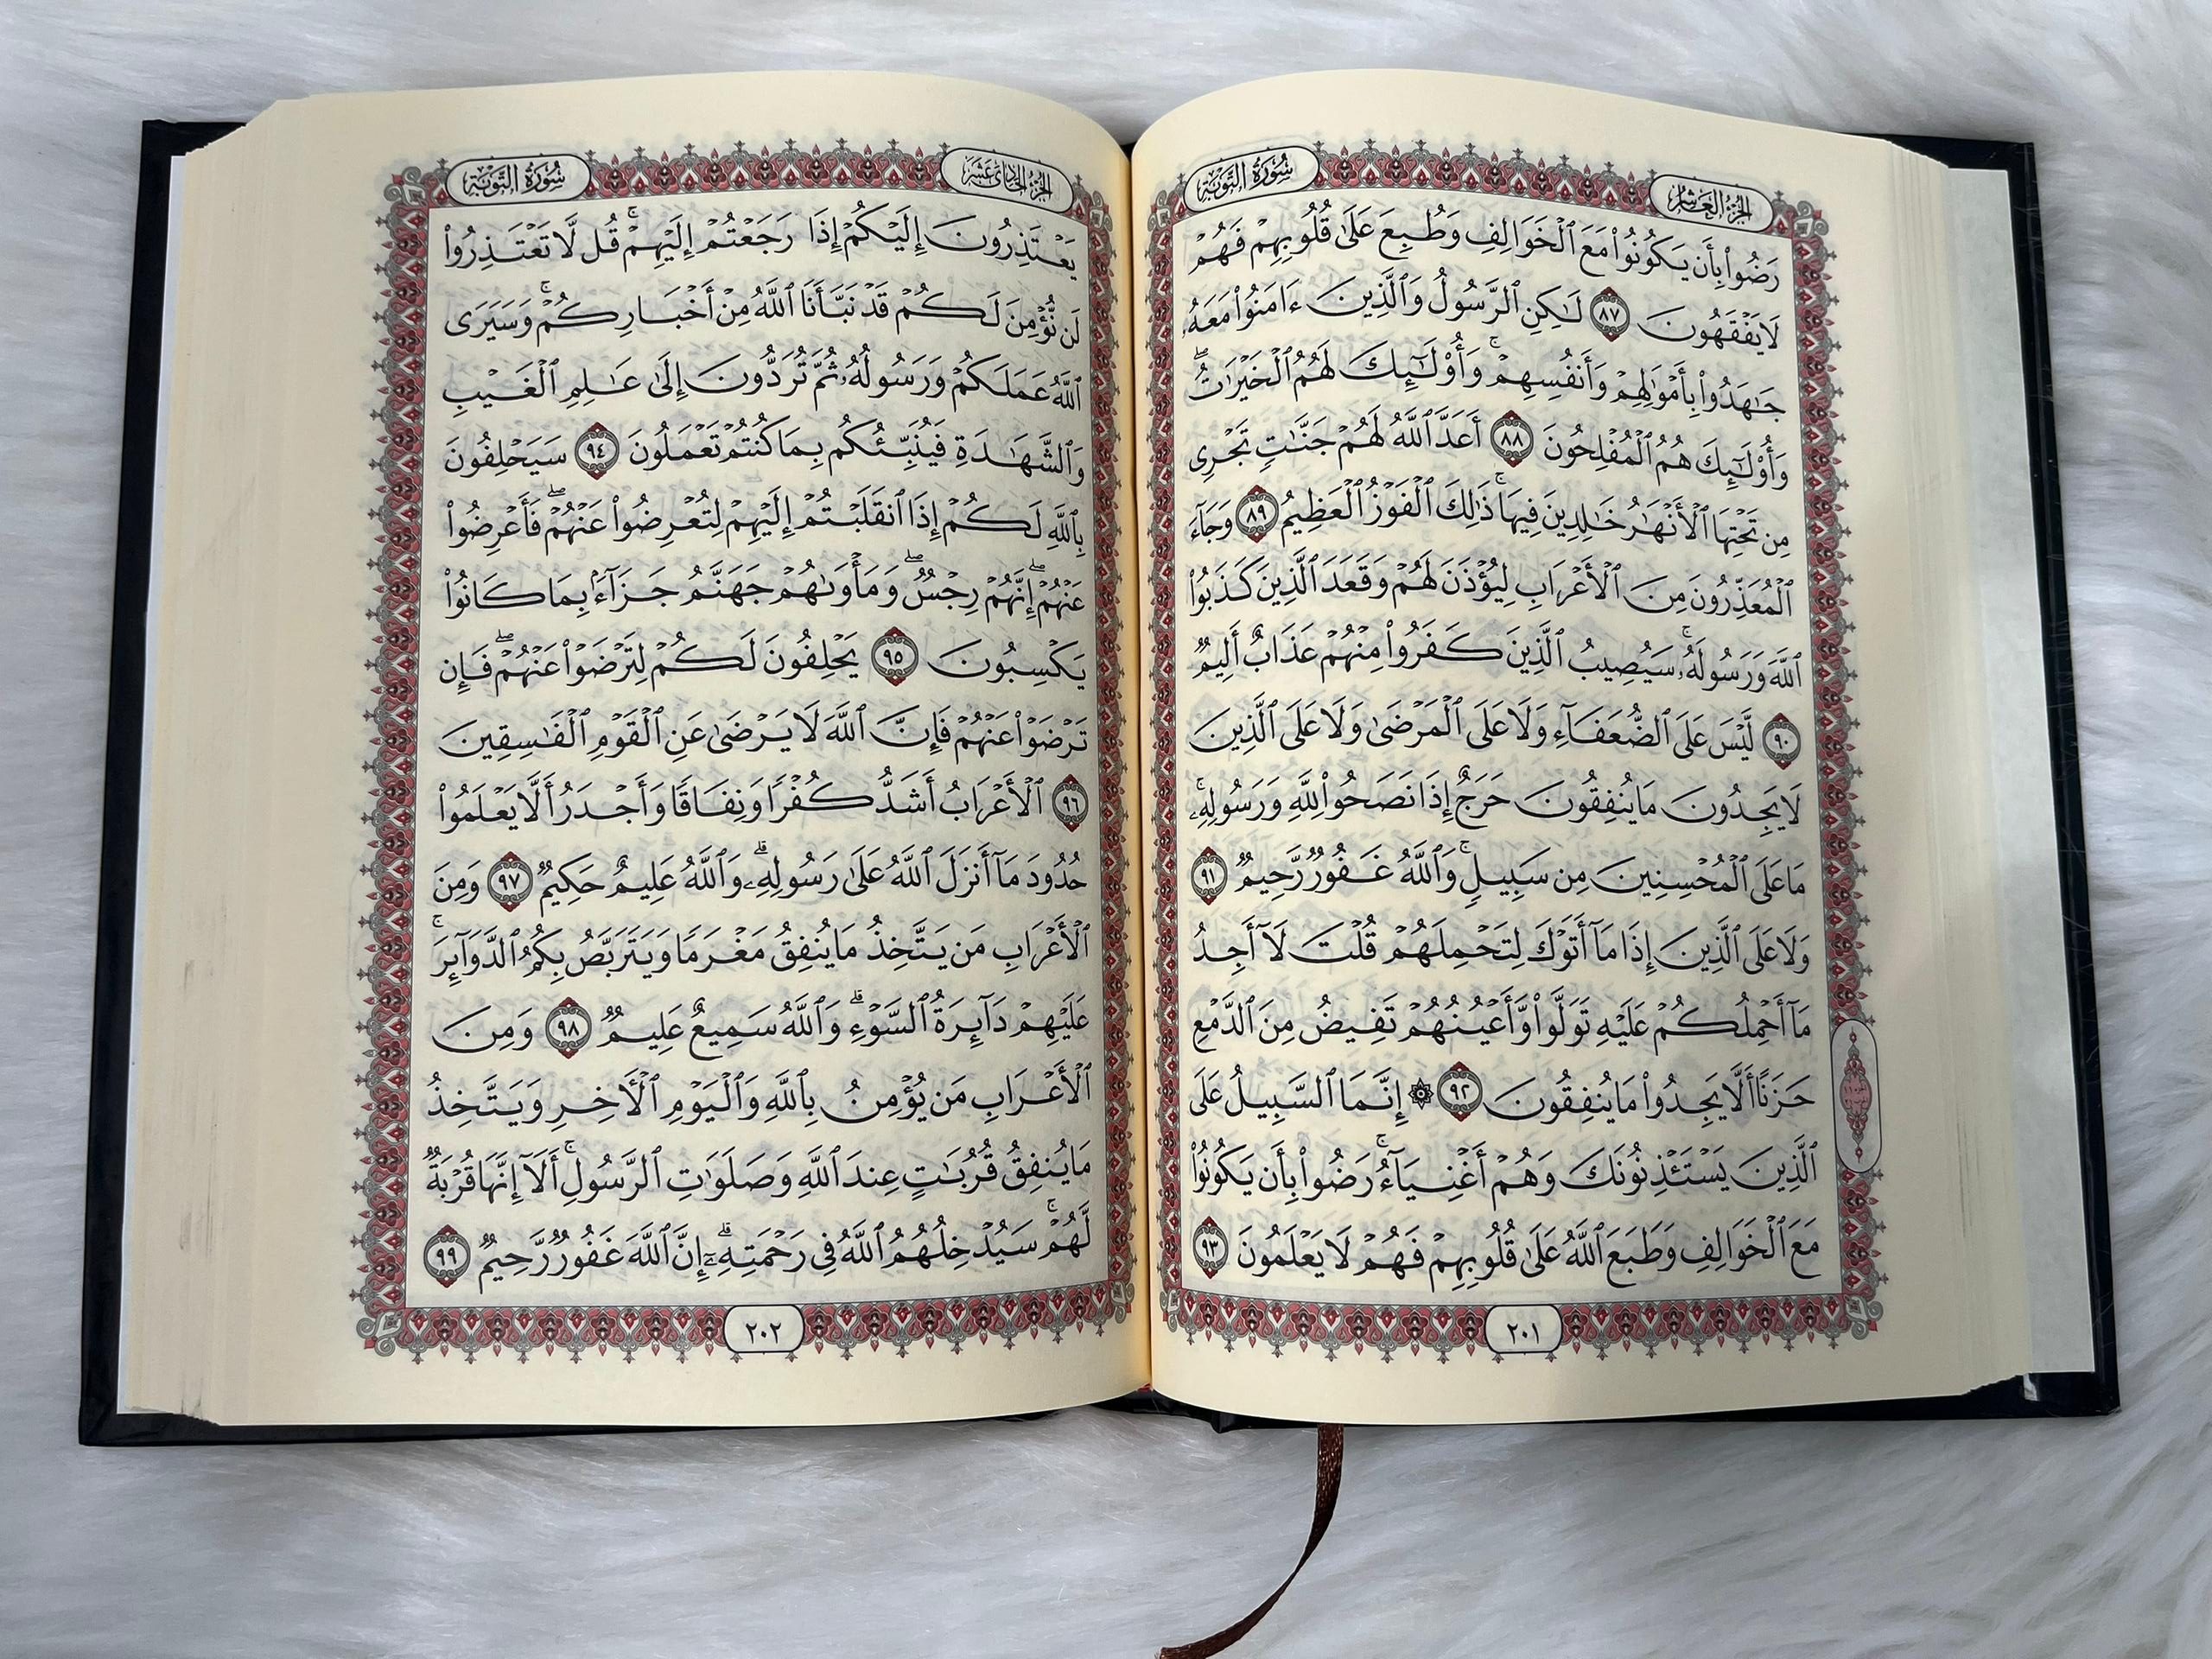 الجزء العاشر
سورة التوبة
رَضُوا۟ بِأَن يَكُونُوا۟ مَعَ ٱلْخَوَالِفِ وَطُبِعَ عَلَىٰ قُلُوبِهِمْ فَهُمْ
لَا يَفْقَهُونَ ٨٧ لَـٰكِنِ ٱلرَّسُولُ وَٱلَّذِينَ ءَامَنُوا۟ مَعَهُۥ
جَـٰهَدُوا۟ بِأَمْوَٰلِهِمْ وَأَنفُسِهِمْ ۚ وَأُو۟لَـٰٓئِكَ لَهُمُ ٱلْخَيْرَٰتُ ۖ
وَأُو۟لَـٰٓئِكَ هُمُ ٱلْمُفْلِحُونَ ٨٨ أَعَدَّ ٱللَّهُ لَهُمْ جَنَّـٰتٍ تَجْرِى
مِن تَحْتِهَا ٱلْأَنْهَـٰرُ خَـٰلِدِينَ فِيهَا ۚ ذَٰلِكَ ٱلْفَوْزُ ٱلْعَظِيمُ ٨٩ وَجَآءَ
ٱلْمُعَذِّرُونَ مِنَ ٱلْأَعْرَابِ لِيُؤْذَنَ لَهُمْ وَقَعَدَ ٱلَّذِينَ كَذَبُوا۟
ٱللَّهَ وَرَسُولَهُۥ ۚ سَيُصِيبُ ٱلَّذِينَ كَفَرُوا۟ مِنْهُمْ عَذَابٌ أَلِيمٌ
٩٠ لَّيْسَ عَلَى ٱلضُّعَفَآءِ وَلَا عَلَى ٱلْمَرْضَىٰ وَلَا عَلَى ٱلَّذِينَ
لَا يَجِدُونَ مَا يُنفِقُونَ حَرَجٌ إِذَا نَصَحُوا۟ لِلَّهِ وَرَسُولِهِۦ ۚ
مَا عَلَى ٱلْمُحْسِنِينَ مِن سَبِيلٍ ۚ وَٱللَّهُ غَفُورٌ رَّحِيمٌ ٩١
وَلَا عَلَى ٱلَّذِينَ إِذَا مَآ أَتَوْكَ لِتَحْمِلَهُمْ قُلْتَ لَآ أَجِدُ
مَآ أَحْمِلُكُمْ عَلَيْهِ تَوَلَّوا۟ وَّأَعْيُنُهُمْ تَفِيضُ مِنَ ٱلدَّمْعِ
حَزَنًا أَلَّا يَجِدُوا۟ مَا يُنفِقُونَ ٩٢ ۞ إِنَّمَا ٱلسَّبِيلُ عَلَى
ٱلَّذِينَ يَسْتَـْٔذِنُونَكَ وَهُمْ أَغْنِيَآءُ ۚ رَضُوا۟ بِأَن يَكُونُوا۟
مَعَ ٱلْخَوَالِفِ وَطَبَعَ ٱللَّهُ عَلَىٰ قُلُوبِهِمْ فَهُمْ لَا يَعْلَمُونَ ٩٣
٢٠١
الجزء الحادي عشر
سورة التوبة
يَعْتَذِرُونَ إِلَيْكُمْ إِذَا رَجَعْتُمْ إِلَيْهِمْ ۚ قُل لَّا تَعْتَذِرُوا۟
لَن نُّؤْمِنَ لَكُمْ قَدْ نَبَّأَنَا ٱللَّهُ مِنْ أَخْبَارِكُمْ ۚ وَسَيَرَى
ٱللَّهُ عَمَلَكُمْ وَرَسُولُهُۥ ثُمَّ تُرَدُّونَ إِلَىٰ عَـٰلِمِ ٱلْغَيْبِ
وَٱلشَّهَـٰدَةِ فَيُنَبِّئُكُم بِمَا كُنتُمْ تَعْمَلُونَ ٩٤ سَيَحْلِفُونَ
بِٱللَّهِ لَكُمْ إِذَا ٱنقَلَبْتُمْ إِلَيْهِمْ لِتُعْرِضُوا۟ عَنْهُمْ ۖ فَأَعْرِضُوا۟
عَنْهُمْ ۖ إِنَّهُمْ رِجْسٌ ۖ وَمَأْوَىٰهُمْ جَهَنَّمُ جَزَآءًۢ بِمَا كَانُوا۟
يَكْسِبُونَ ٩٥ يَحْلِفُونَ لَكُمْ لِتَرْضَوْا۟ عَنْهُمْ ۖ فَإِن
تَرْضَوْا۟ عَنْهُمْ فَإِنَّ ٱللَّهَ لَا يَرْضَىٰ عَنِ ٱلْقَوْمِ ٱلْفَـٰسِقِينَ
٩٦ ٱلْأَعْرَابُ أَشَدُّ كُفْرًا وَنِفَاقًا وَأَجْدَرُ أَلَّا يَعْلَمُوا۟
حُدُودَ مَآ أَنزَلَ ٱللَّهُ عَلَىٰ رَسُولِهِۦ ۗ وَٱللَّهُ عَلِيمٌ حَكِيمٌ ٩٧ وَمِنَ
ٱلْأَعْرَابِ مَن يَتَّخِذُ مَا يُنفِقُ مَغْرَمًا وَيَتَرَبَّصُ بِكُمُ ٱلدَّوَآئِرَ ۚ
عَلَيْهِمْ دَآئِرَةُ ٱلسَّوْءِ ۗ وَٱللَّهُ سَمِيعٌ عَلِيمٌ ٩٨ وَمِنَ
ٱلْأَعْرَابِ مَن يُؤْمِنُ بِٱللَّهِ وَٱلْيَوْمِ ٱلْـَٔاخِرِ وَيَتَّخِذُ
مَا يُنفِقُ قُرُبَـٰتٍ عِندَ ٱللَّهِ وَصَلَوَٰتِ ٱلرَّسُولِ ۚ أَلَآ إِنَّهَا قُرْبَةٌ
لَّهُمْ ۚ سَيُدْخِلُهُمُ ٱللَّهُ فِى رَحْمَتِهِۦٓ ۗ إِنَّ ٱللَّهَ غَفُورٌ رَّحِيمٌ ٩٩
٢٠٢